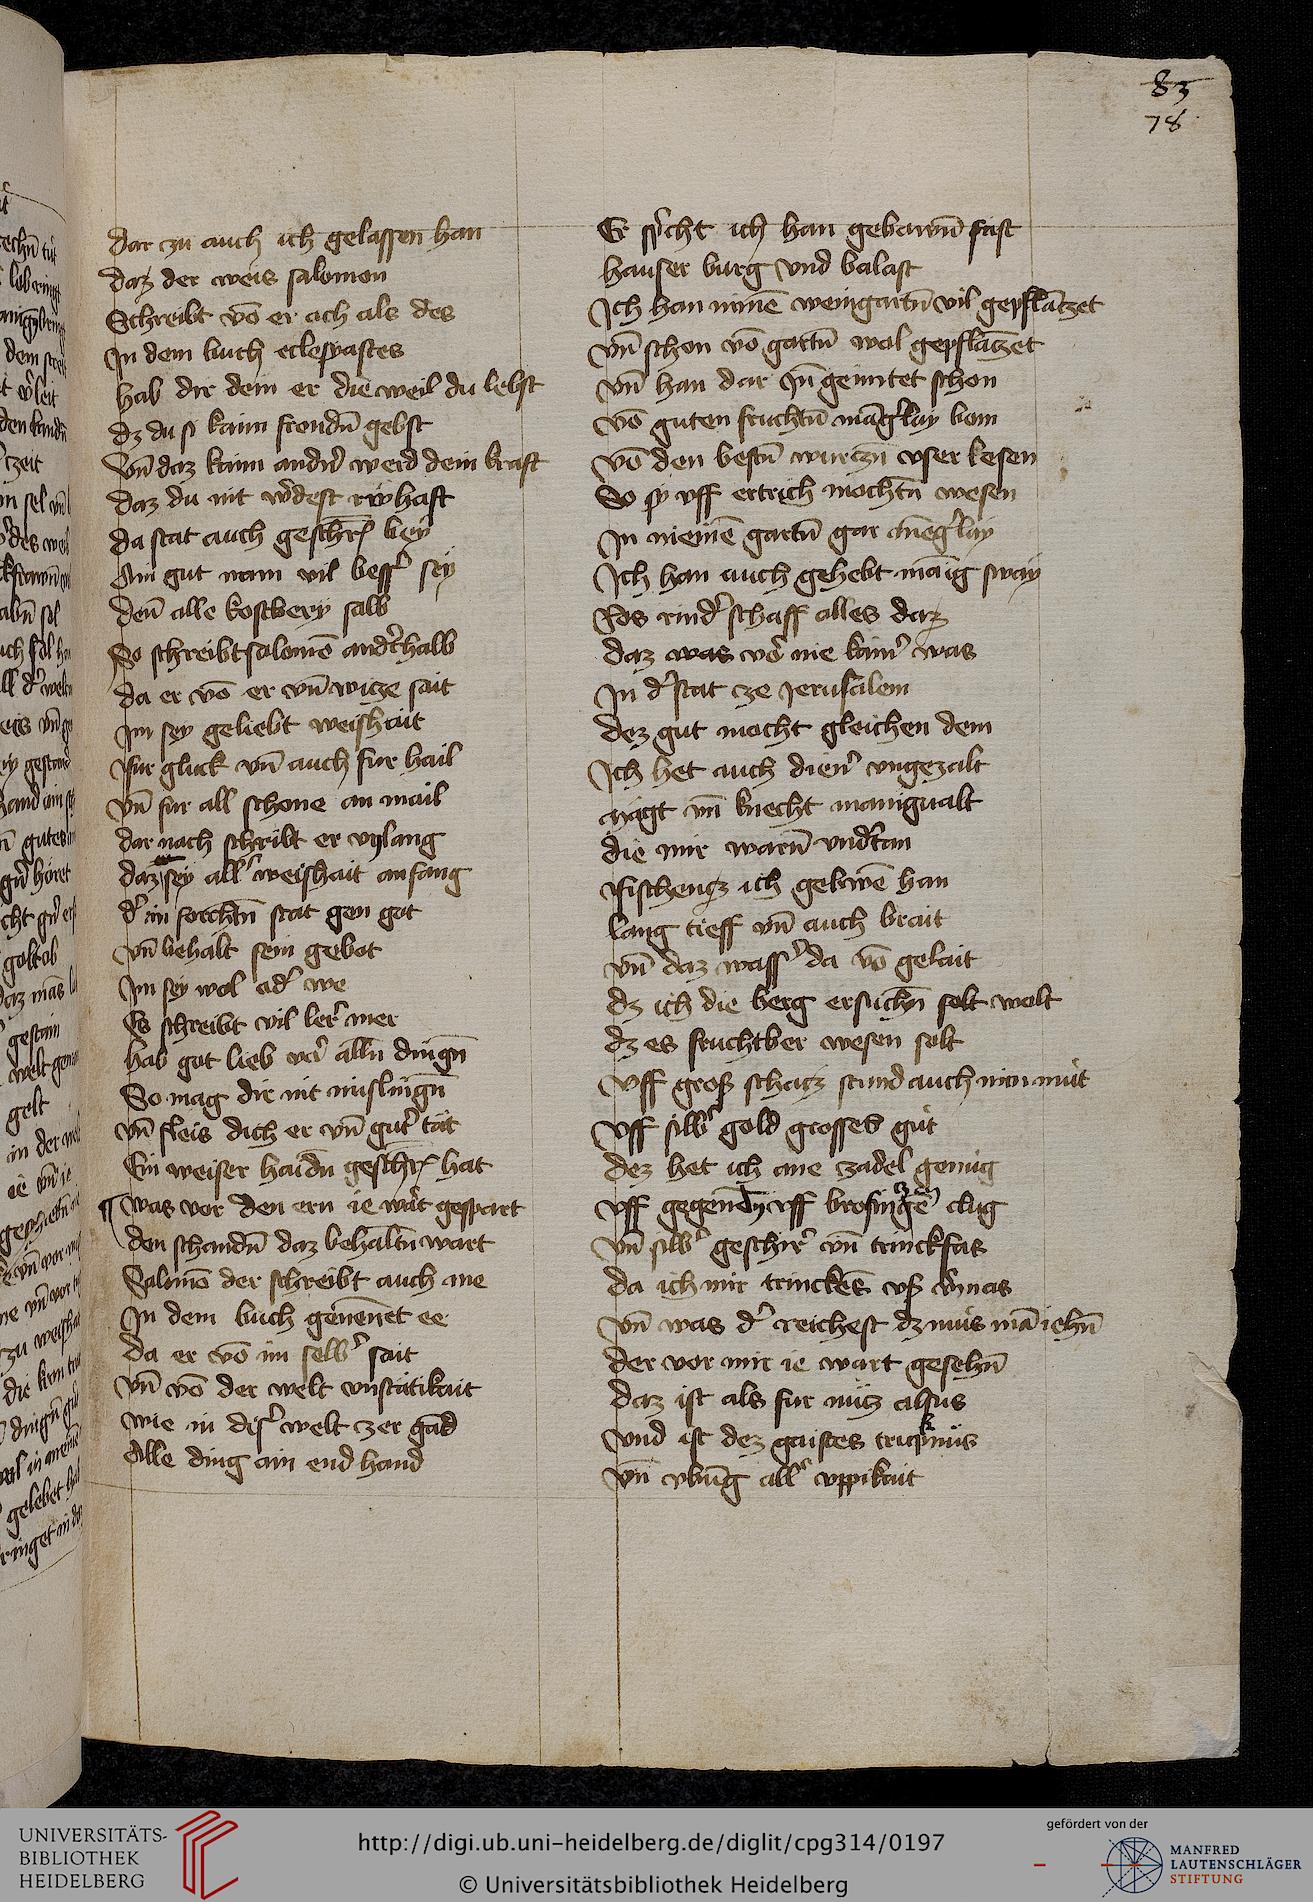 83
78
dar zu auch ich gelassen han
daz der weis salomon
Schreibt vō er ach als des
In dem buch eclesyastes
hab dir dein er die weil du lebst
dz du si kaim fremdn̄ gebst
Vn̄ daz kaim andn̄ werd dein kraft
daz du nit wͤdest riwhaft
da stat auch geschrͦ bey
Ain gut nam vil bessͤ sey
den̄ alle kostbery salb
So schreibt salomō andͤhalb
da er vō er vn̄ wicze sait
Im sey geliebt weishait
Fur gluck vn̄ auch fur hail
vn̄ fur all schone an mail
dar nach schribt er vylang
daz sey allͤ weishait anfang
dͤ in forchtn̄ stat gen got
vn̄ behalt sein gebot
Im sey wol odͤ we
Es schreibt vil lerͤ mer
hab got lieb vorͤ alln̄ dingn̄
So mag dir nit mislingn̄
vn̄ fleis dich er vn̄ gutͤ tat
Ein weiser haidn̄ geschrͦ hat
was vor den ern ie wart gespart
den schandn̄ daz behaltn̄ wart
Salomō der schreibt auch me
In dem buch genen̄et ee
da er vō im selbͤ sait
vn̄ vō der welt vnstatikait
wie in disͤ welt zer gād
Alle ding ain end hand
Er sp̄cht ich han gebawn̄ fast
hauser burg vnd balast
Ich han minē weingartn̄ vil gepflāczet
vn̄ schon vō gartn̄ wol gepflāczet
vn̄ han dar In̄ geimtet schon
vō guten fruchtn̄ māgͤlay bom
vō den bestn̄ wurczn̄ vser kesen
So sy vff ertrich mochtn̄ wesen
In meinē gartn̄ gar mēgͤlay
Ich han auch gehebt māig sway
Ros rindͤ schaff alles daz
daz was vorͤ nie kainͤ was
In dͤ stat ze Jerusalem
dez gut mocht gleichen dem
Ich het auch dienͤ vngezalt
mägt vn̄ knecht manigualt
die mir warn̄ vndͤtan
Fischencz ich gebwē han
lang tieff vn̄ auch brait
vn̄ daz wassͤ da vō gelait
dz ich die berg ersuchn̄ solt wolt
dz es fruchtber wesen solt
vff groß schacz stund auch min mut
vff silbͤ gold grosses gut
dez het ich ane zadel genug
vff gegenē vff brosinczgē clug
vn̄ silbͤ geschirͤ vn̄ trinckfas
da ich mir trinckēs vß
vn̄ was dͤ reichest dz mus mā iehn̄
der vor mir ie wart gesehn̄
daz ist als fur nücz alsus
vnd ist dez gaistes
vn̄ vbūg allͤ vppikait
UNIVERSITÄTS-
BIBLIOTHEK
HEIDELBERG
http://digi.ub.uni-heidelberg.de/diglit/cpg314/0197
© Universitätsbibliothek Heidelberg
gefördert von der
MANFRED
LAUTENSCHLÄGER
STIFTUNG